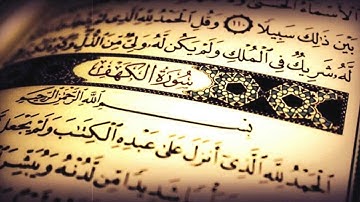 الأسماء الحسنى
بين ذلك سبيلا ١١٠ وقل الحمد لله
له شريك في الملك ولم يكن له ولي من الذل
سورة الكهف
بسم الله الرحمن الرحيم
الحمد لله الذي أنزل على عبده الكتاب ولم يجعل
شديدا من لدنه ويبشر